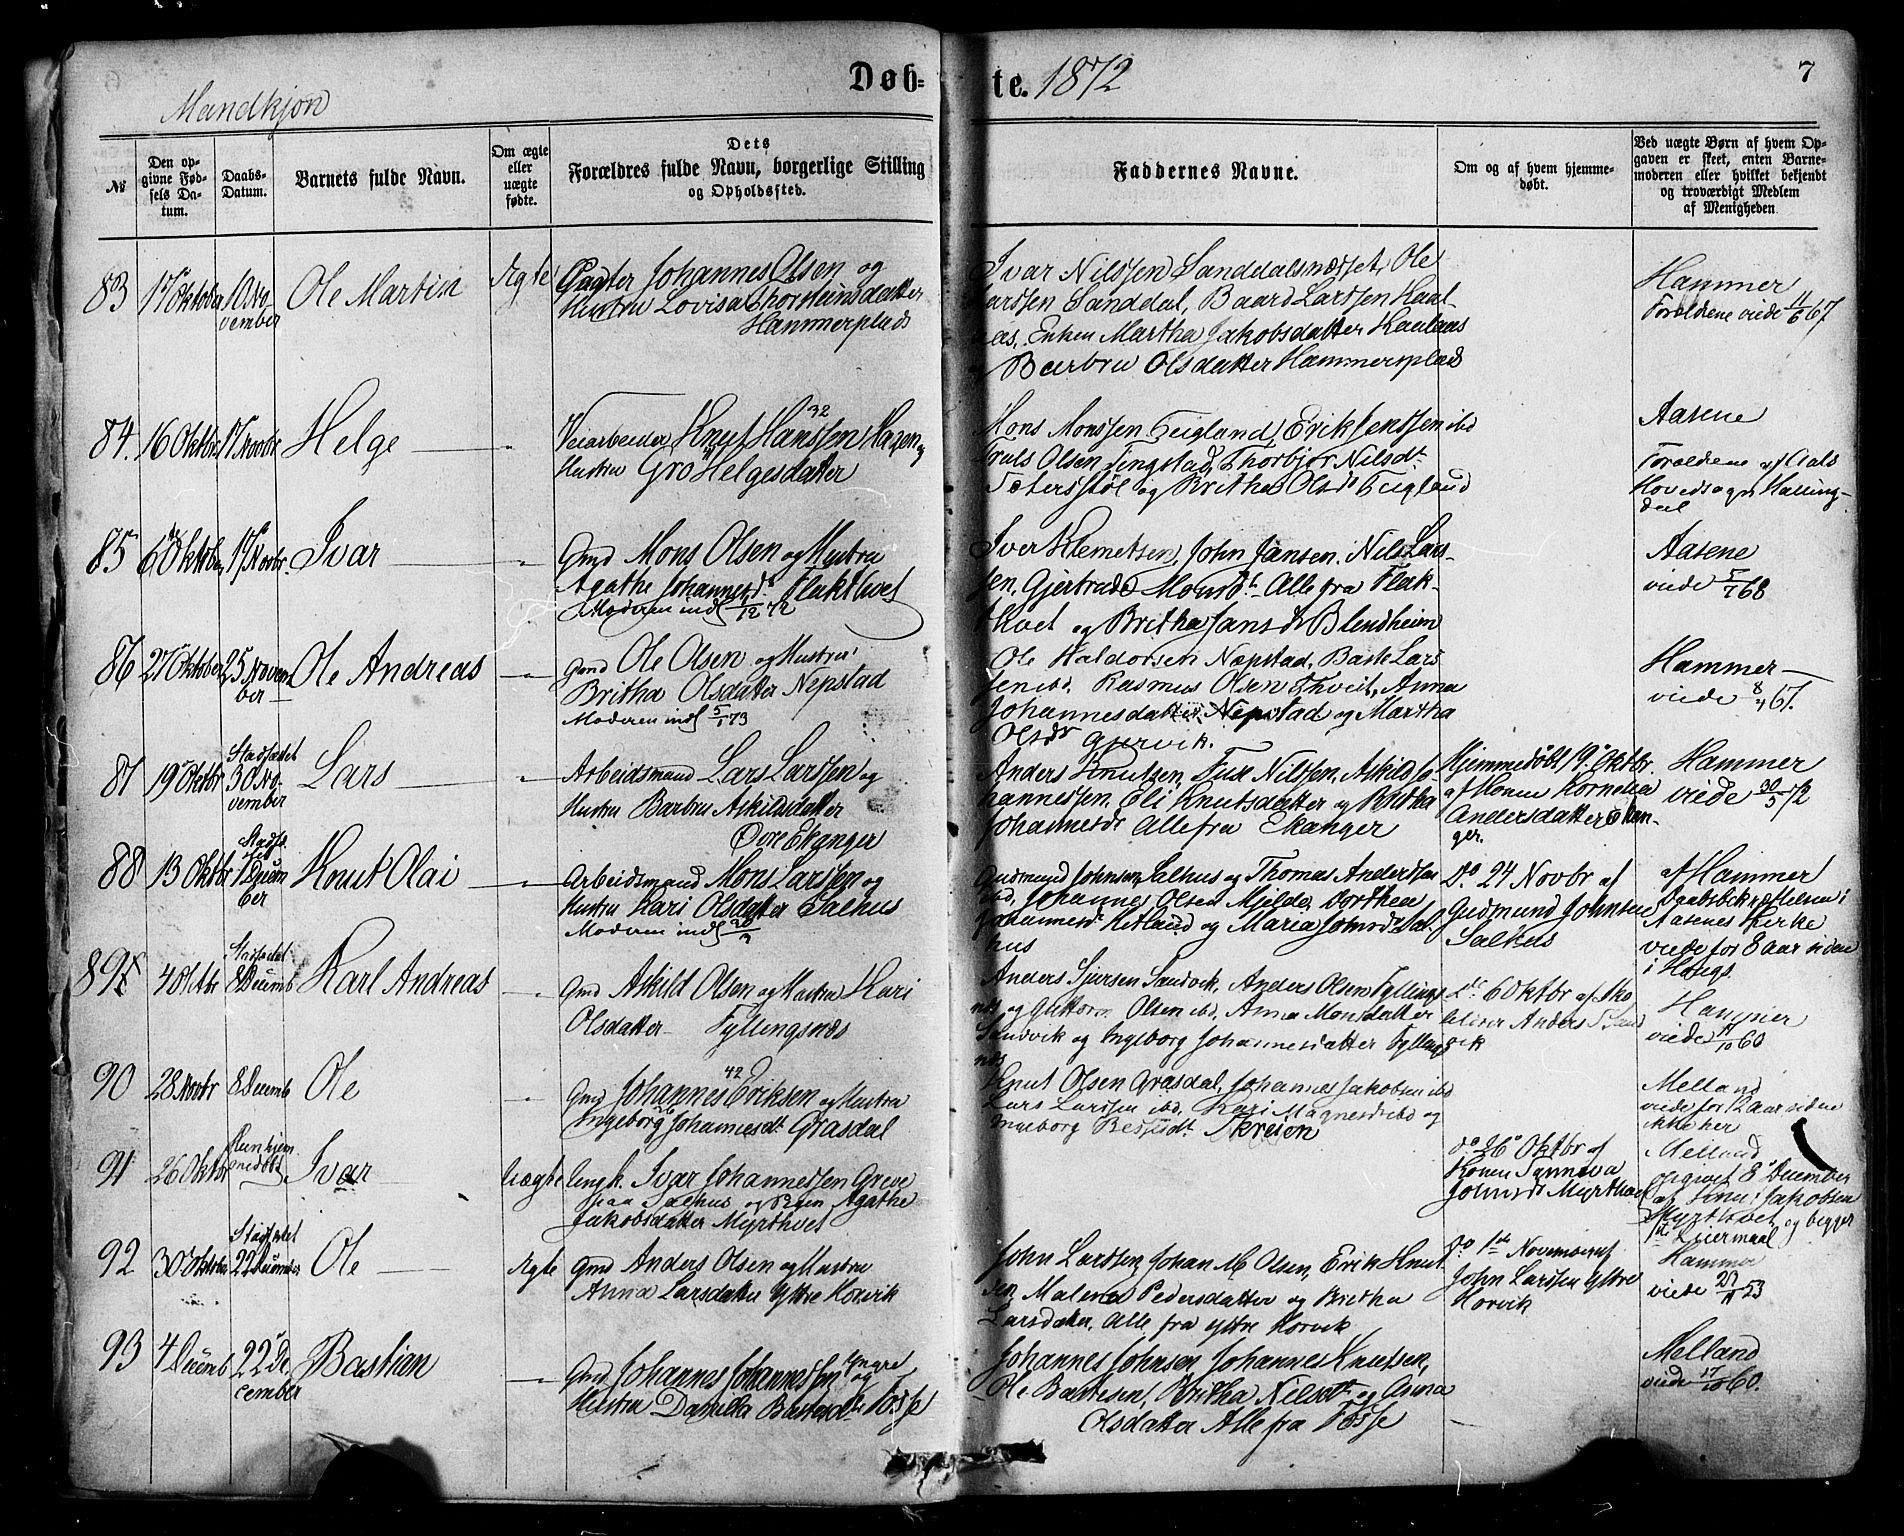 Døbte. 1872
7
Mandkjøn
№
Den opgivne Fødsels Datum.
Daabs-Datum.
Barnets fulde Navn.
Om ægte eller uægte fødte.
Dets Forældres fulde Navn, borgerlige Stilling og Opholdssted.
Faddernes Navne.
Om og af hvem hjemmedøbt.
Ved uægte Børn af hvem Opgaven er skeet, enten Barnemoderen eller hvilket bekjendt og troværdigt Medlem af Menigheden
83 17 Oktober 10 November Ole Martin Ægte
Johannes Olsen og
Hustru Lovisa Thorsteinsdatter
Hammerplads
Ivar Nilssen Sanddalsnæsset, Ole
Larssen Sanddal, Baard Larssen
Enken Martha Jakobsdatter
Barbru Olsdatter Hammersplads
Hammer
Forældrene viede 11/6 67
84. 16 Oktbr 17 Novbr Helge "
Veiarbeider Knut Hanssen 32 Hagen og
Hustru Gro Helgesdatter
Mons Monssen Teigland, Erik Jenssen ibd
Truls Olsen Tingstad, Thorbjør Nilsdt
og Britha Olsdt Teigland
Aasene
Forældrene af Aals
Hovedsogn Hallingdal
85 6 Oktober 17 Novbr. Ivar "
Gmd Mons Olsen og Hustru
Agathe Johannesdt Flaktvet
Moderen indl 1/12 72
Iver Klemetsen, John Jansen, Nils Larssen,
Gjertrude Monsdt Alle fra Flaktvet
og Britha Jansdt Blendheim
Aasene
viede 5/7 68
86 27 Oktober 25 November Ole Andreas "
Gmd Ole Olsen og Hustru
Britha Olsdatter Nepstad
Moderen indl 5/1 73
Ole Haldorsen Nepstad, Baste Larssen
ibd. Rasmus Olsen Thveit, Anna
Johannesdatter Nepstad og Martha
Olsdr Gjervik.
Hammer
viede 67.
87 19 Oktbr Stadfæstet 30 November Lars "
Arbeidsmand Lars Larssen og
Hustru Barbru Askildsdatter
Øvre Ekanger
Anders Knutsen, Nilssen, Askild Johannessen,
Eli Knutsdatter og Britha
Johannesdr Alle fra Ekanger
Hjemmedøbt 19 Oktbr.
af Konen Kornelia
Andersdatter Ekanger.
Hammer
viede 30/5 72
88 13 Oktbr Stadfæstet 1 December Knut Olai "
Arbeidsmand Mons Larssen og
Hustru Kari Olsdatter Salhus
Moderen indl
Gudmund Johnsen Salhus og Thomas Anderssen
ibd, Johannes Olsen Mjelde, Dorthea
Johannesdt Hetland og Maria Johnsdt Salhus
Do 24 Novbr af
Gudmund Johnsen
Salhus
af Hammer
i
Aasenes Kirke
viede for 8 aar siden
i Hougs.
89 4 Oktbr Stadfæstet 8 Decemb Karl Andreas "
Gmd Askild Olsen og Hustru Kari
Olsdatter Fyllingsnæs
Anders Sjursen Sandvik, Anders Olsen Fyllingsnæs
og Guttorm Olsen ibd, Anna Monsdatter
Sandvik og Ingeborg Johannesdatter Fyllingsnæs
6 Oktbr af Skoleholder
Anders Sandvik
Hammer
viede 60
90 28 Novbr 8 Decemb Ole "
Gmd Johannes 42 Eriksen og Hustru
Ingeborg Johannesdt. Grasdal
Knut Olsen Grasdal, Johannes Jakobsen ibd
Lars Larssen ibd. Kari Magnesdt ibd og
Ingeborg
Melland
viede for 12 aar siden
ikke her
91 26 Oktbr Kun hjemmedøbt Ivar Uægte
Ungk. Ivar Johannessen Greve
paa Salhus og Pigen Agathe
Jakobsdatter Myrthvet
do 26 Oktbr af
Konen Synneva
Johnsdt Myrthvet
Melland
opgivet 8 December
af
Myrthvet og begges
1ste Leiermaal
92 30 Oktober Stadfæstet 22 December Ole Ægte
Gmd Anders Olsen og Hustru
Anna Larsdatter Yttre Horvik
John Larssen, Johan M Olsen, Erik Knutsen,
Malena Pedersdatter og Britha
Larsdatter, Alle fra Yttre Horvik
Do 1ste November af
John Larssen Yttre
Horvik
Hammer
viede 53
93 4 Decemb 22 December Bastian "
Gmd Johannes Johannessen Yngre og
Hustru Danilla Bastesdt Fosse
Johannes Johnsen, Johannes Knutsen,
Ole Bastesen, Britha Nilsdt. og Anna
Olsdatter Alle fra Fosse
Melland
viede 17/10 60.